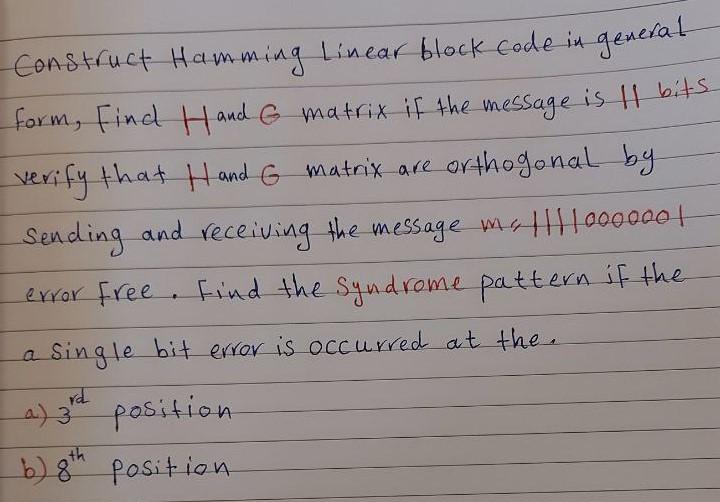 Construct Hamming Linear block code in general
form, Find H and G matrix if the message is 11 bits
verify that H and G matrix are orthogonal by
Sending and receiving the message m=11110000001
error free. Find the Syndrome pattern if the
a single bit error is occurred at the.
a) 3rd position
b) 8th position